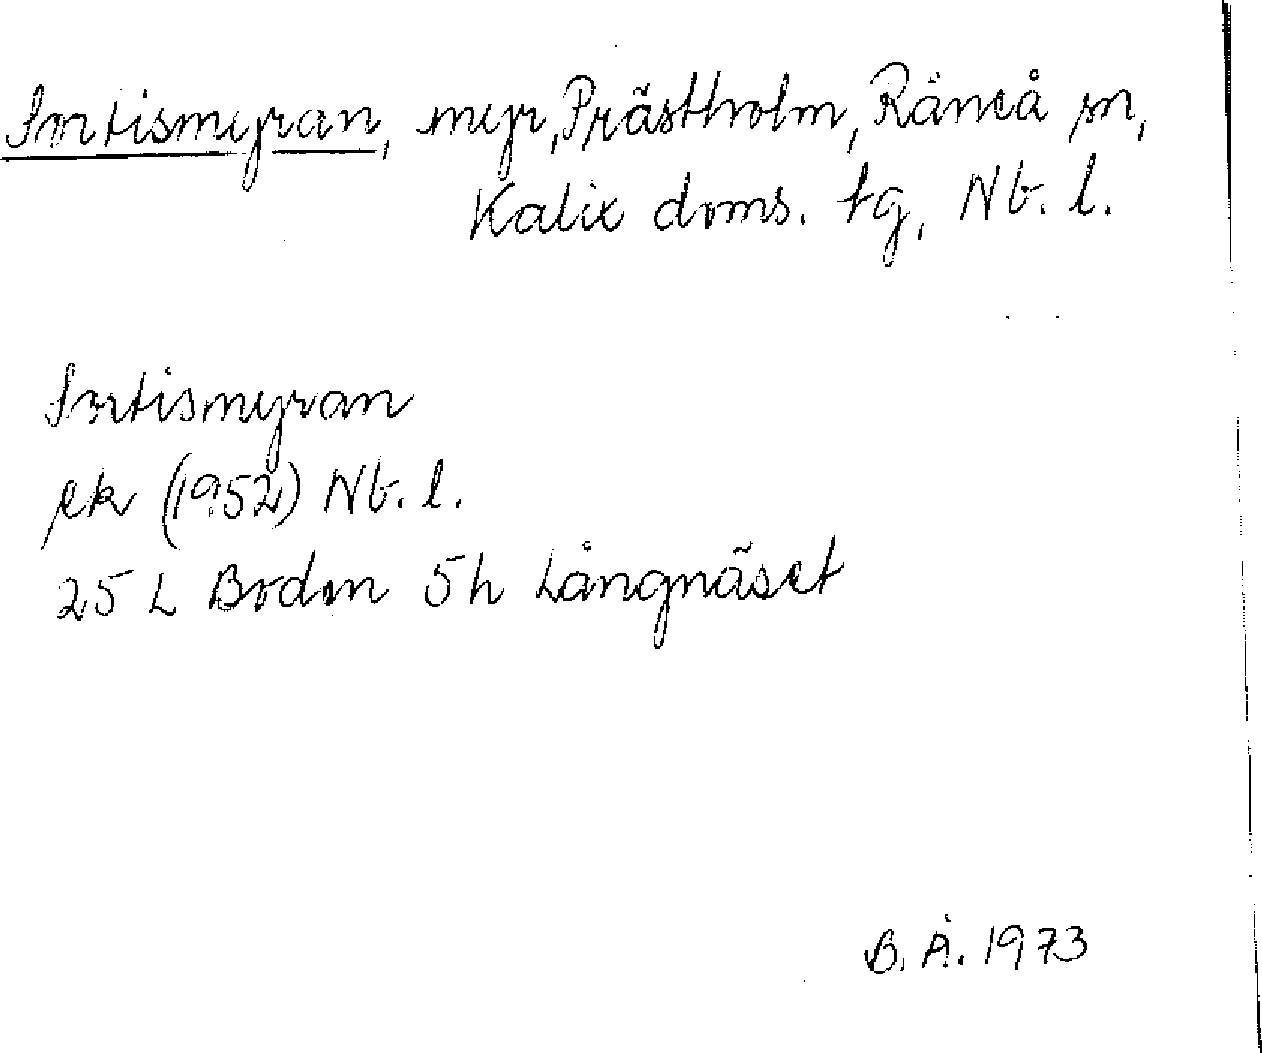 Sortismyran, myr, Prästholm, Råneå sn,
Kalix doms. tg, Nb. l.
Sortismyran
ek (1952) Nb. l.
25 L Boden 5h Långnäset
B. Å. 1973